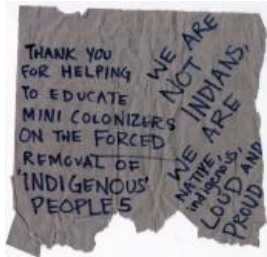 THANK YOU
FOR HELPING
TO EDUCATE
MINI COLONIZERS
ON THE FORCED
REMOVAL OF
'INDIGENOUS'
PEOPLES
WE ARE
NOT
INDIANS,
WE ARE
NATIVE 'indigenous',
LOUD AND
PROUD